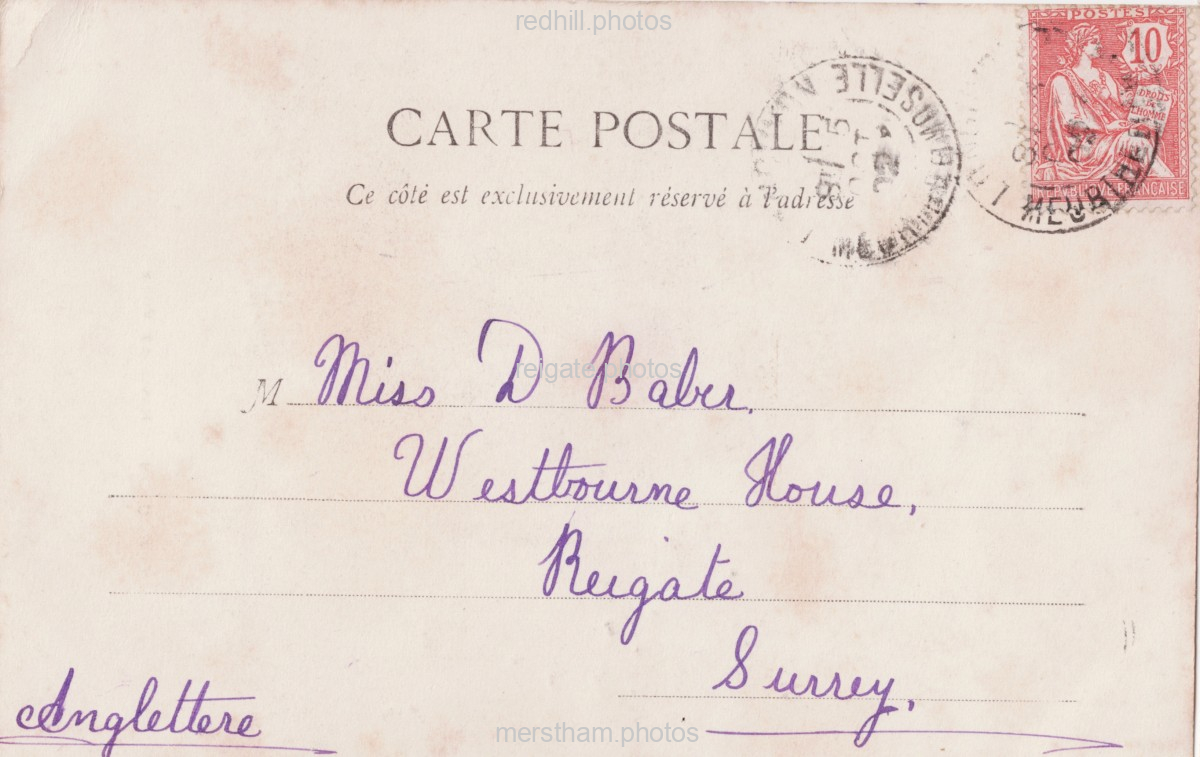 redhill.photos
POSTES
10
DROITS
DE
L'HOMME
CARTE POSTALE
Ce côté est exclusivement réservé à l'adresse
reigate.photos
M Miss D Baber,
Westbourne House,
Reigate
Surrey,
Anglettere
merstham.photos